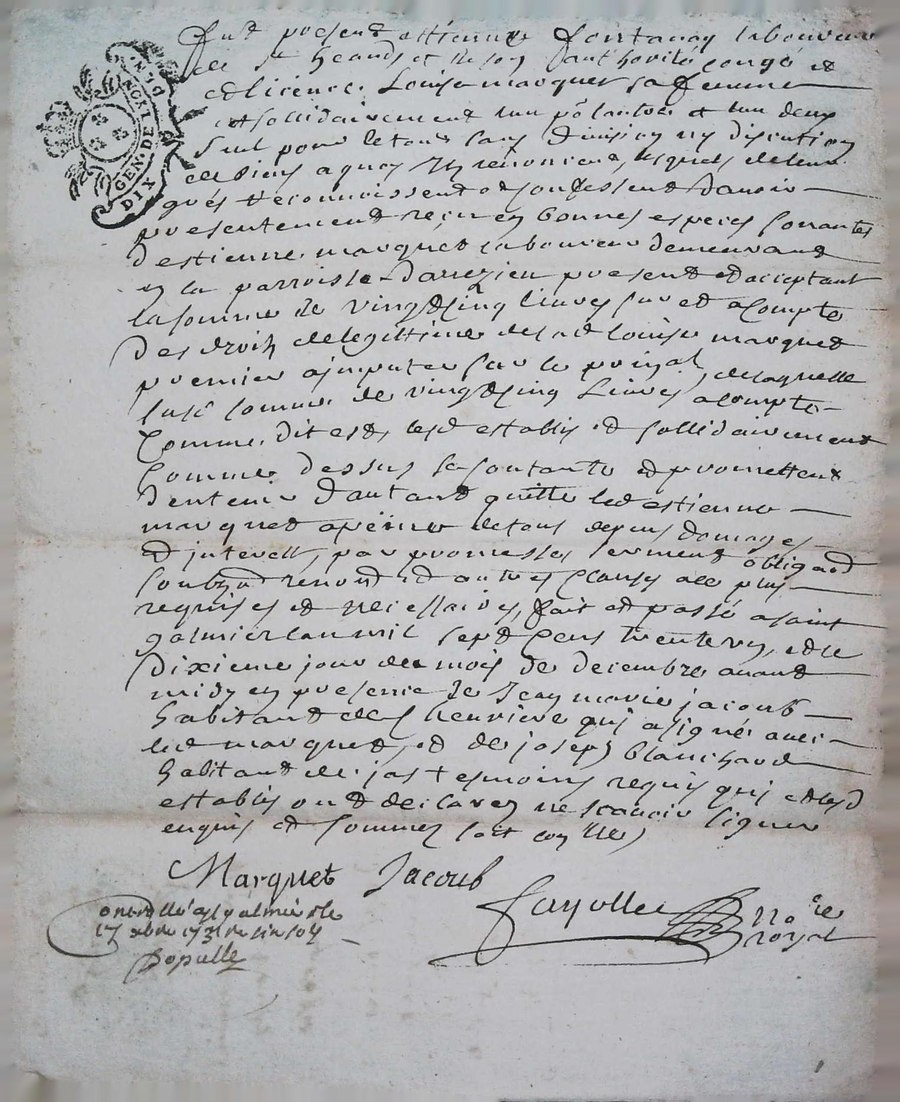 GEN. DE LYON
DIX DEN
fut present estienne fontanay laboureur
de St heand et de son authorité congé et
et licence Louise marquet sa femme
et sollidairement lun pour lautre et lun deux
seul pour le tout sans division ny discution
de biens a quoy ils renoncent, lesquels de leur
grés reconnoissent et confessent davoir
presentement reçu en bonnes especes courantes
destienne marquet laboureur demeurant
en la parroisse present et acceptant
la somme de vingt cinq livres sur et a compte
des droits de legittime de lad louise marquet
premier a imputer sur le prinçal, de laquelle
susd somme de vingt cinq livres a compte
comme dit est, lesd establis et sollidairement
comme dessus se contante et promettent
dentenir dautant quitte led estienne
marquet a peine de tous depens domages
et interests, par promesses serment obligaon
soubzmd renond et autres clauses a ce plus
requises et necessaires, fait et passé a saint
galmier lan mil sept cens trente un, et le
dixieme jour du mois de decembre avant
midy en presence de Jean marie jacoub
habitant de chevriere qui a signé avec
led marquet, et de joseph blanchard
habitant de jas tesmoins requis qui et lesd
establis ont declarez ne scavoir signer
enquis et sommez
Marquet Jacoub
fayolle no.re
royal
Controllé a St galmier le
17 xbre 1731